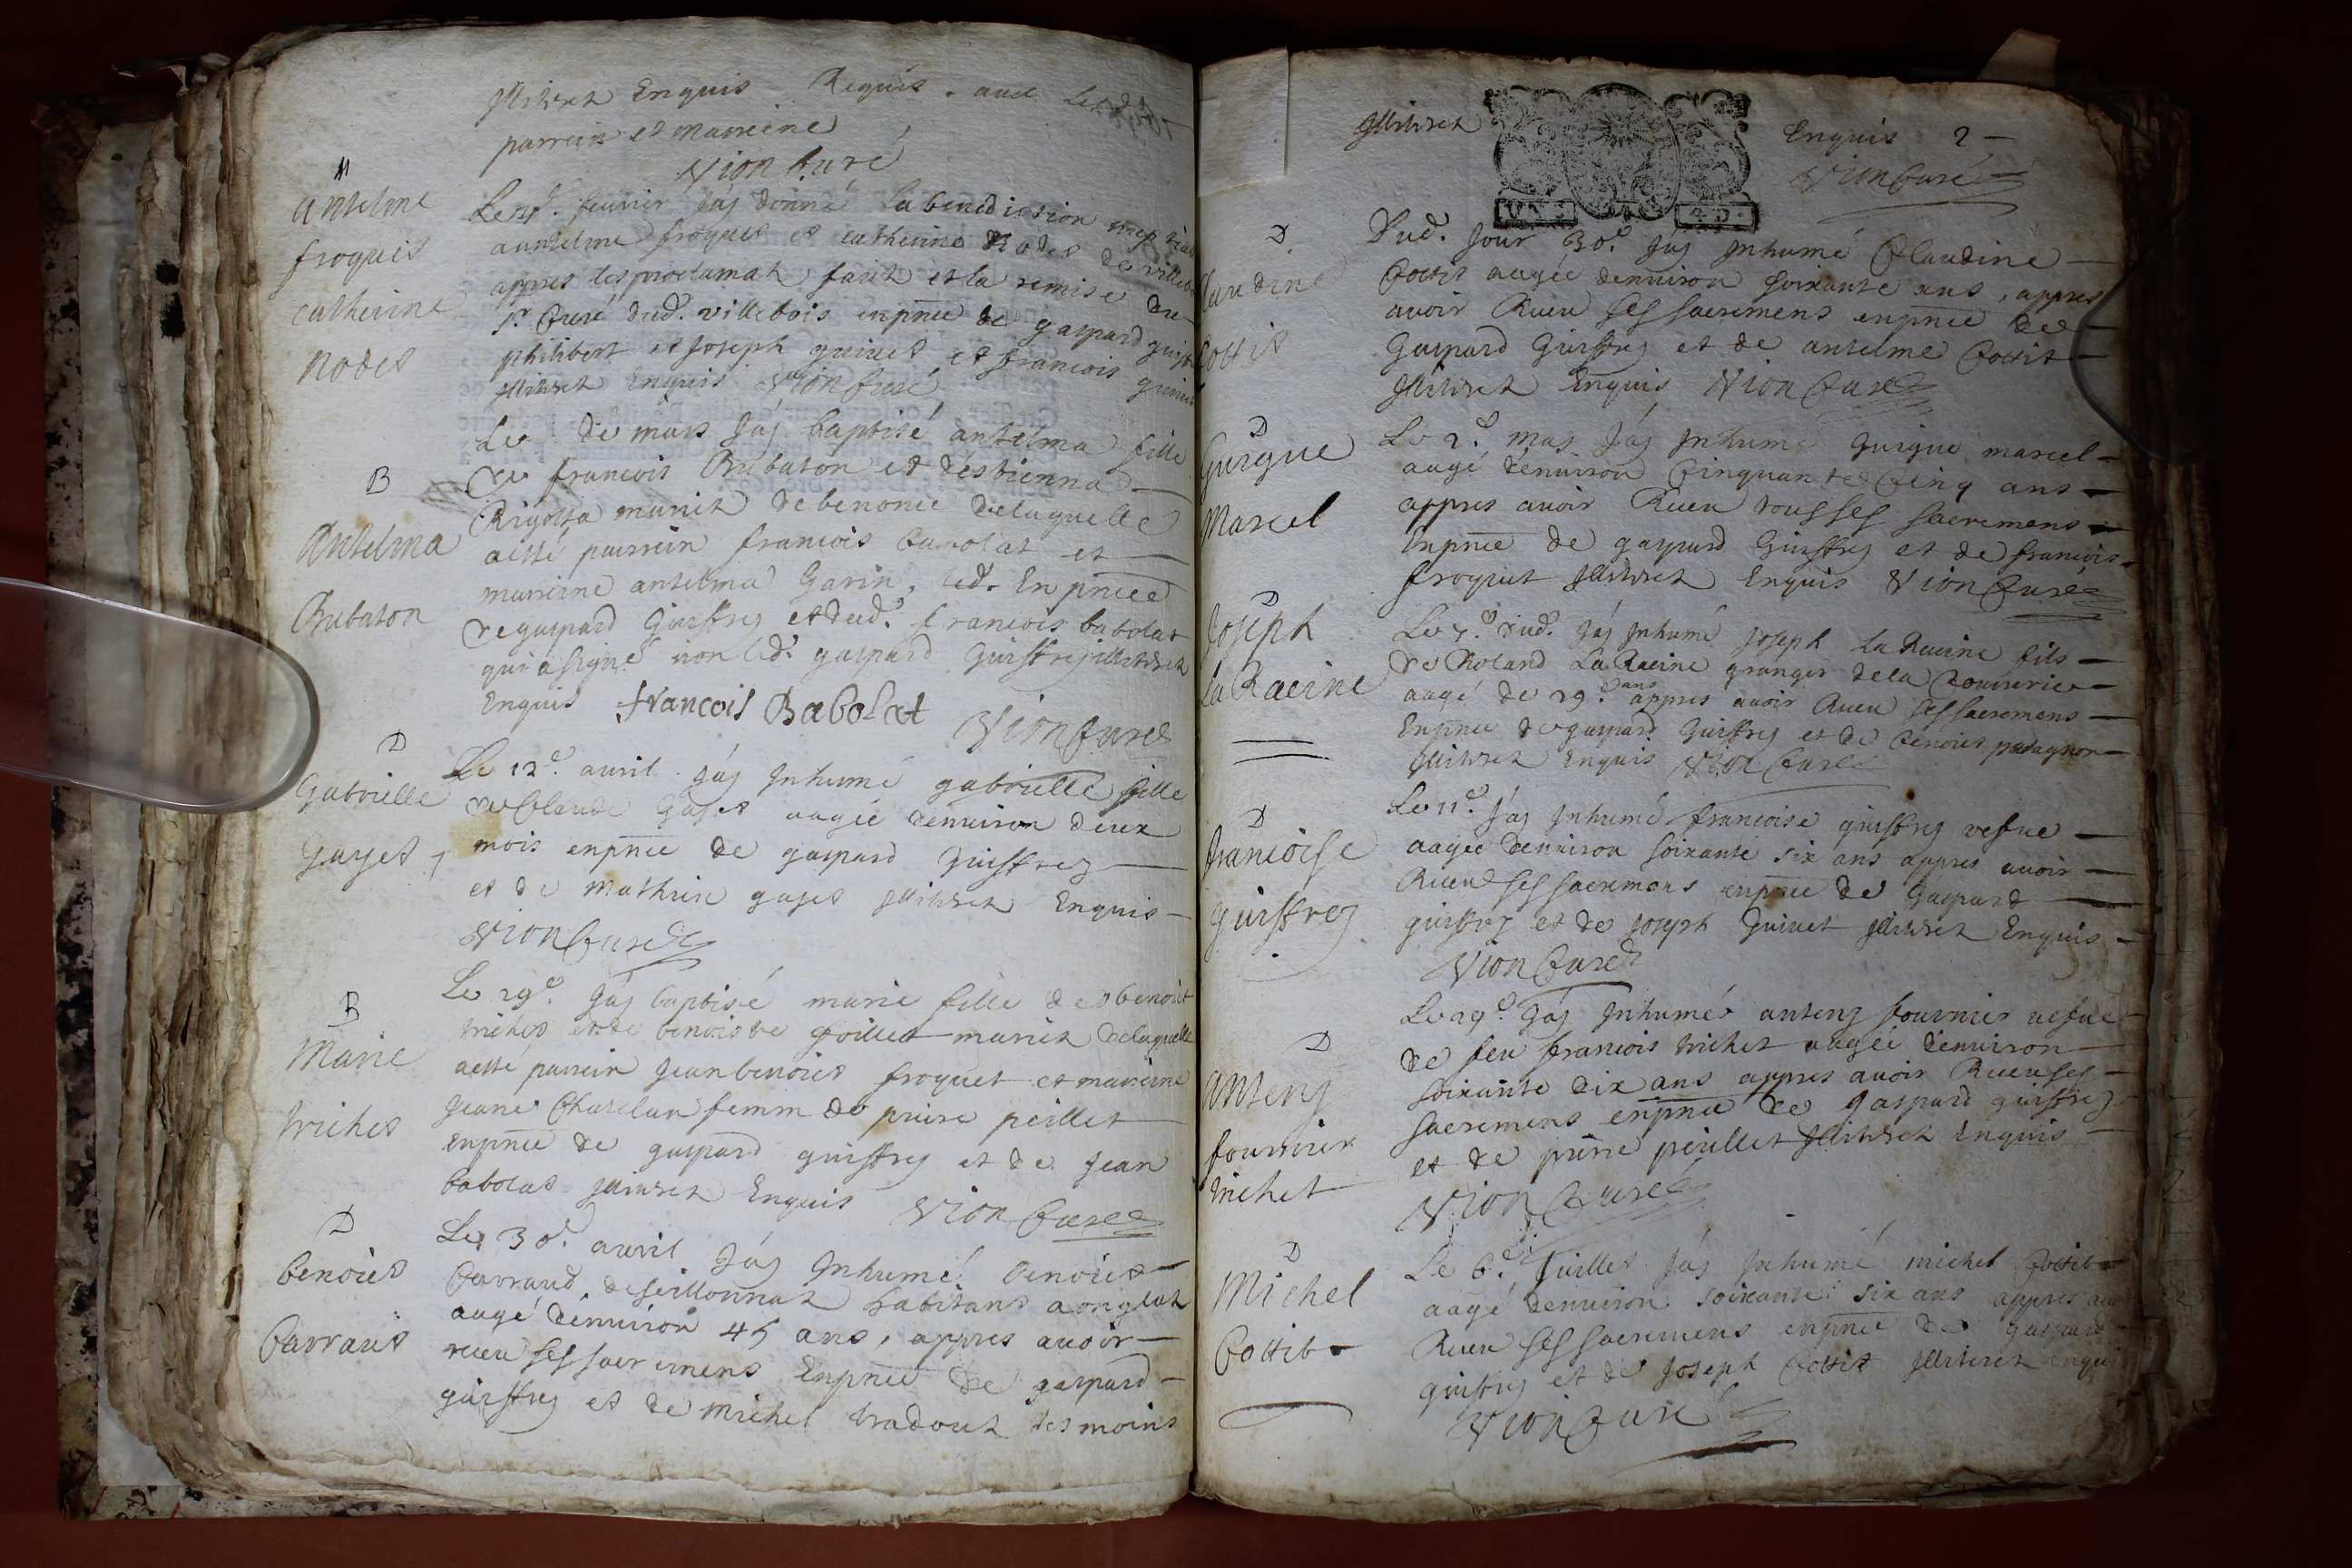 Illitres Enquis Requis. avec
parrein et marreine
Vion Curé
M
Anselme
froquet
catherine
nodet
fevrier Jáy donné La benediction
a antelme froquet et catherine nodet de
appres les proclamats faits et la remise du
Sr. Curé dud. villebois enpnce de gaspard
philibert et Joseph guinet et francois guinet
Illitres Enquis Vion Curé
B
Antelma
Bubaton
Le de mars Jáy baptisé antelma fille
de francois Bubaton et d'estienna
mariés de benonce de laquelle
a esté parrein francois babolat et
marreine antelma Garin, Enpnce
de gaspard Guiffrey et dud. francois babolat
qui a signé non led. gaspard Guiffrey illitres
Enquis francois Babolat Vion Curé
D
Gabrielle
gayet
Le 12e. avril Jáy Inhumé gabrielle fille
de Claude Gayet aagée denviron deux
mois enpnce de gaspard Guiffrey
et de Mathieu gayet Illitres Enquis
Vion Curé
B
Marie
trichet
Le 29e. Jáy baptisé marie fille de benoict
trichet et de benoiste goillet mariés de laquelle
a esté parrein Jean benoict froquet et marreine
Jeane femm de piere peillet
enpnce de gaspard guiffrey et de Jean
babolat Enquis Vion Curé
D
benoict
Carraud
Le 30e. avril Jáy Inhumé benoict
Carraud, de seillonnat habitant a onglat
aagé denviron 45 ans, appres avoir
receu ses sacremens Enpnce de gaspard
guiffrey et de Michel tesmoins
Illitres Enquis 2
Vion Curé
D
Claudine
Cottit
Dud. Jour 30e. Jáy Inhumé Claudine
Cottit aagée denviron soixante ans, appres
avoir Receu ses sacremens enpnce de
Gaspard Guiffrey et de antelme Cottit
Illitres Enquis Vion Curé
D
Guigue
Marcel
Le 2e. may Jáy Inhumé guigue marcel
aagé denviron Cinquante Cinq ans
appres avoir Receu tous ses sacremens
Enpnce de gaspard Guiffrey et de francois
froquet Illitres Enquis Vion Curé
D
Joseph
La Racine
Le 7e. dud. Jáy Inhumé Joseph La Racine fils
de Roland La Racine granger de la
aagé de 29e. ans appres avoir Receu ses sacremens
Enpnce de gaspard Guiffrey et de benoict
Illitres Enquis Vion Curé
D
francoise
guiffrey
Le 11e. Jáy Inhumé francoise guiffrey vefve
aagée denviron soixante six ans appres avoir
Receu ses sacremens enpnce de Gaspard
guiffrey et de Joseph Guinet Illitres Enquis
Vion Curé
D
Anteny
fournier
trichet
Le 29e. Jáy Inhumé anteny fournier vefve
de feu francois trichet aagée denviron
soixante dix ans appres avoir Receu ses
sacremens enpnce de gaspard guiffrey
et de pierre peillet Illitres Enquis
Vion Curé
D
Michel
Cottit
Le 6e. Juillet Jáy Inhumé michel Cottit
aagé denviron soixante six ans appres
Receu ses sacremens enpnce de gaspard
guiffrey et de Joseph Cottit Illitres
Vion Curé